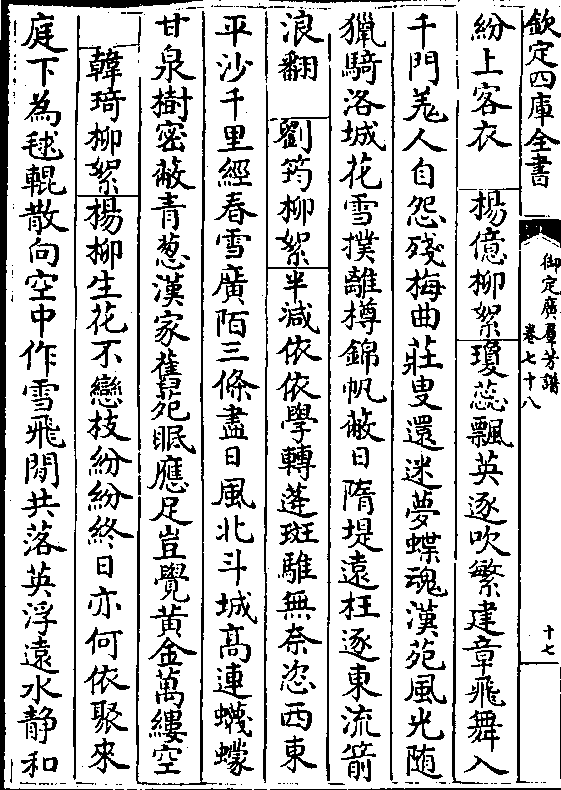 欽定四庫全書
御定廣羣芳譜
卷七十八
十七
紛上客衣　楊億柳絮瓊蕊飄英逐吹繁建章飛舞入
千門羗人自怨殘梅曲莊叟還迷夢蝶魂漢苑風光随
獵騎洛城花雪撲離樽錦帆蔽日隋堤遠枉逐東流箭
浪翻　劉筠柳絮半減依依學轉蓬斑騅無奈恣西東
平沙千里經春雪廣陌三條盡日風北斗城髙連蠛蠓
甘泉樹密蔽青葱漢家舊苑眠應足豈覺黄金萬縷空
韓琦柳絮楊柳生花不戀枝紛紛終日亦何依聚來
庭下為毬輥散向空中作雪飛閒共落英浮遠水静和